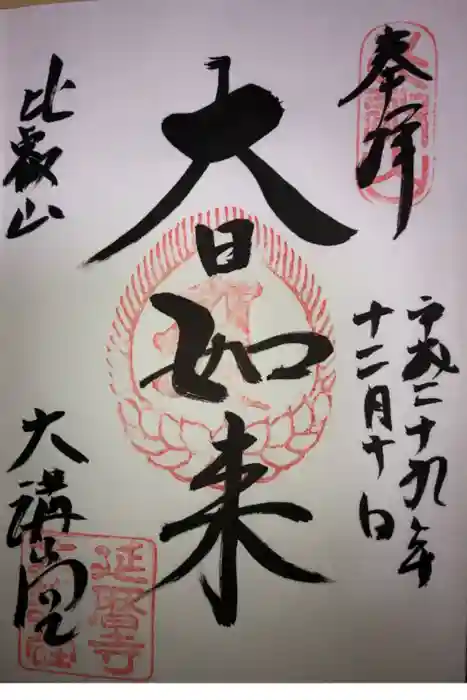 奉拝
平成二十九年
十二月十日
大日如来
比叡山
大講堂
延暦寺